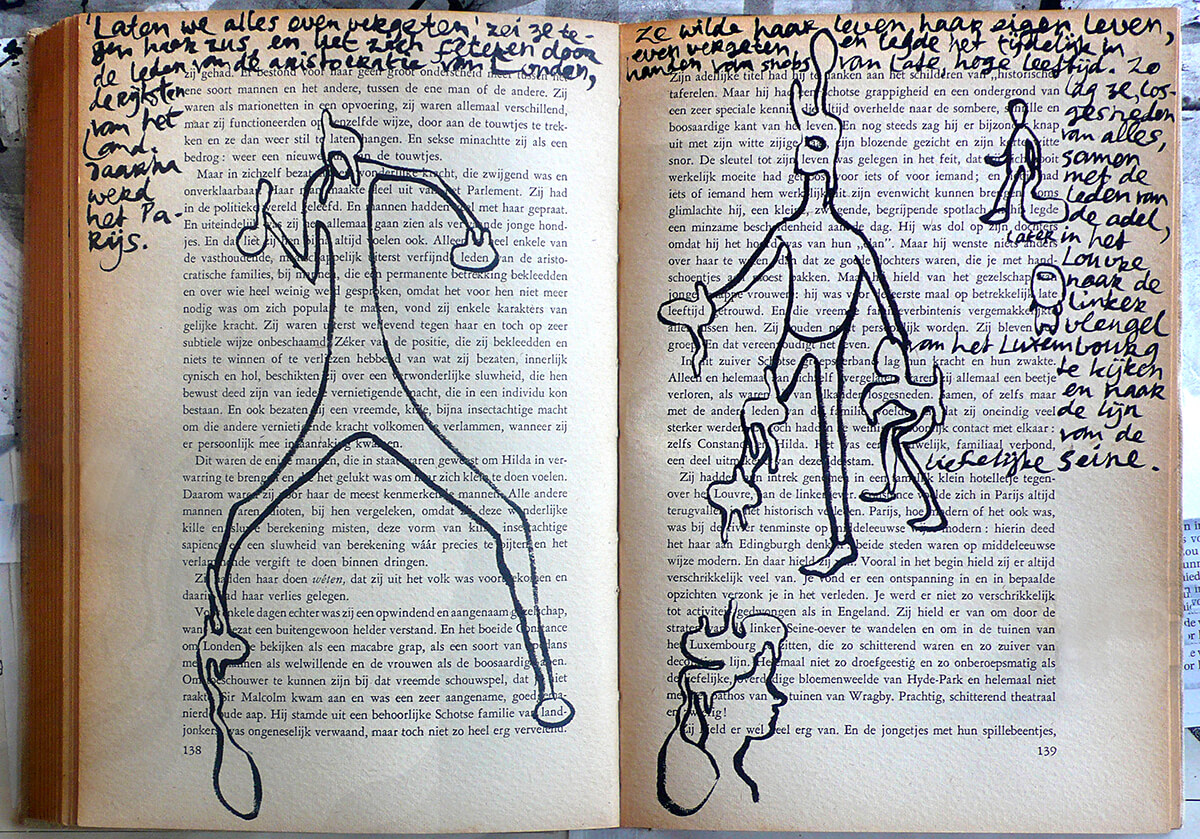 'Laten we alles even vergeten,' zei ze te-
gen haar zus en liet zich fêteren door
de leden van de aristocratie van Londen,
de rijksten
van het
land.
Daarna
werd
het Pa-
rijs.
zij gehad. Er bestond voor haar geen groot onderscheid meer tussen het
ene soort mannen en het andere, tussen de ene man of de andere. Zij
waren als marionetten in een opvoering, zij waren allemaal verschillend,
maar zij functioneerden op dezelfde wijze, door aan de touwtjes te trek-
ken en ze dan weer stil te laten hangen. En sekse minachtte zij als een
bedrog: weer een nieuwe van de touwtjes.
Maar in zichzelf bezat een wonderlijke kracht, die zwijgend was en
onverklaarbaar. Haar man maakte deel uit van het Parlement. Zij had
in de politieke wereld geleefd. En mannen hadden veel met haar gepraat.
En uiteindelijk was zij hen allemaal gaan zien als vervelende jonge hond-
jes. En dat liet zij hen bijna altijd voelen ook. Alleen heel enkele van
de vasthoudende, maatschappelijk uiterst verfijnde leden van de aristo-
cratische families, bij mannen, die een permanente betrekking bekleedden
en over wie heel weinig werd gesproken, omdat het voor hen niet meer
nodig was om zich populair te maken, vond zij enkele karakters van
gelijke kracht. Zij waren uiterst welwillend tegen haar en toch op zeer
subtiele wijze onbeschaamd. Zéker van de positie, die zij bekleedden en
niets te winnen of te verliezen hebbend van wat zij bezaten, innerlijk
cynisch en hol, beschikten zij over een verwonderlijke sluwheid, die hen
bewust deed zijn van ieder vernietigende kracht, die in een individu kon
bestaan. En ook bezaten zij een vreemde, kille, bijna insectachtige macht
om die andere vernietigende kracht volkomen te verlammen, wanneer zij
er persoonlijk mee in aanraking kwamen.
Dit waren de enige mannen, die in staat waren geweest om Hilda in ver-
warring te brengen en die het gelukt was om haar zich klein te doen voelen.
Daarom waren zij voor haar de meest kenmerkende mannen. Alle andere
mannen waren idioten, bij hen vergeleken, omdat zij deze wonderlijke
kille en sluwe berekening misten, deze vorm van kille insectachtige
sapientie, een sluwheid van berekening wáár precies te bijten en het
verlammende vergift te doen binnen dringen.
Zij hadden haar doen wéten, dat zij uit het volk was voortgekomen en
daarin had haar verlies gelegen.
Voor enkele dagen echter was zij een opwindend en aangenaam gezelschap,
want zij bezat een buitengewoon helder verstand. En het boeide Constance
om Londen te bekijken als een macabre grap, als een soort van dodendans
met de mannen als welwillende en de vrouwen als de boosaardige apen.
Om toeschouwer te kunnen zijn bij dat vreemde schouwspel, dat je niet
raakte. Sir Malcolm kwam aan en was een zeer aangename, goedgema-
nierde oude aap. Hij stamde uit een behoorlijke Schotse familie van land-
jonkers, was ongeneselijk verwaand, maar toch niet zo heel erg vervelend.
138
Ze wilde haar leven, haar eigen leven,
even vergeten, en legde het tijdelijk in
handen van snobs van late hoge leeftijd. Zo
lag ze, los-
gesneden
van alles,
samen
met de
leden van
de adel,
later in het
Louvre
naar de
linker
vleugel
van het Luxembourg
te kijken
en naar
de lijn
van de
liefelijke Seine.
Zijn adellijke titel had hij te danken aan het schilderen van „historische"
taferelen. Maar hij had Schotse grappigheid en een ondergrond van
een zeer speciale kennis, die altijd overhelde naar de sombere, schrille en
boosaardige kant van het leven. En nog steeds zag hij er bijzonder knap
uit met zijn witte zijige haar, zijn blozende gezicht en zijn korte witte
snor. De sleutel tot zijn leven was gelegen in het feit, dat hij zich nooit
werkelijk moeite had getroost voor iets of voor iemand; had
iets of iemand hem werkelijk uit zijn evenwicht kunnen brengen. Soms
glimlachte hij, een kleine, zwijgende, begrijpende spotlach en hij legde
een minzame bescheidenheid aan de dag. Hij was dol op zijn dochters
omdat hij het hoofd was van hun „clan". Maar hij wenste niets anders
over haar te weten dan dat ze goede dochters waren, die je met hand-
schoentjes aan moest pakken. Maar hij hield van het gezelschap van
jonge knappe vrouwen: hij was voor de eerste maal op betrekkelijk late
leeftijd getrouwd. En die vreemde familieverbintenis vergemakkelijkte
alles tussen hen. Zij zouden nooit persoonlijk worden. Zij bleven een
groep. En dat vereenvoudigt het leven.
In dit zuiver Schotse groepsverband lag hun kracht en hun zwakte.
Alleen en helemaal aan zichzelf overgelaten waren zij allemaal een beetje
verloren, als waren zij van elkander losgesneden. Samen, of zelfs maar
met de andere leden van de familie, voelden zij dat zij oneindig veel
sterker werden, ook hadden zij weinig persoonlijk contact met elkaar:
zelfs Constance en Hilda. Het was een gruwelijk, familiaal verbond,
een deel uitmaken van dezelfde stam.
Zij hadden hun intrek genomen in een tamelijk klein hotelletje tegen-
over het Louvre, aan de linkeroever. Constance voelde zich in Parijs altijd
terugvallen in het historisch verleden. Parijs, hoe modern of het ook was,
was bij de rivier tenminste op middeleeuwse wijze modern: hierin deed
het haar aan Edingburgh denken, beide steden waren op middeleeuwse
wijze modern. En daar hield zij van. Vooral in het begin hield zij er altijd
verschrikkelijk veel van. Je vond er een ontspanning in en in bepaalde
opzichten verzonk je in het verleden. Je werd er niet zo verschrikkelijk
tot activiteit gedwongen als in Engeland. Zij hield er van om door de
straten van de linker Seine-oever te wandelen en om in de tuinen van
het Luxembourg te zitten, die zo schitterend waren en zo zuiver van
decoratieve lijn. Helemaal niet zo droefgeestig en zo onberoepsmatig als
de liefelijke, overdadige bloemenweelde van Hyde-Park en helemaal niet
met het pathos van de tuinen van Wragby. Prachtig, schitterend theatraal
en !
Zij hield er wel veel erg van. En de jongetjes met hun spillebeentjes,
139